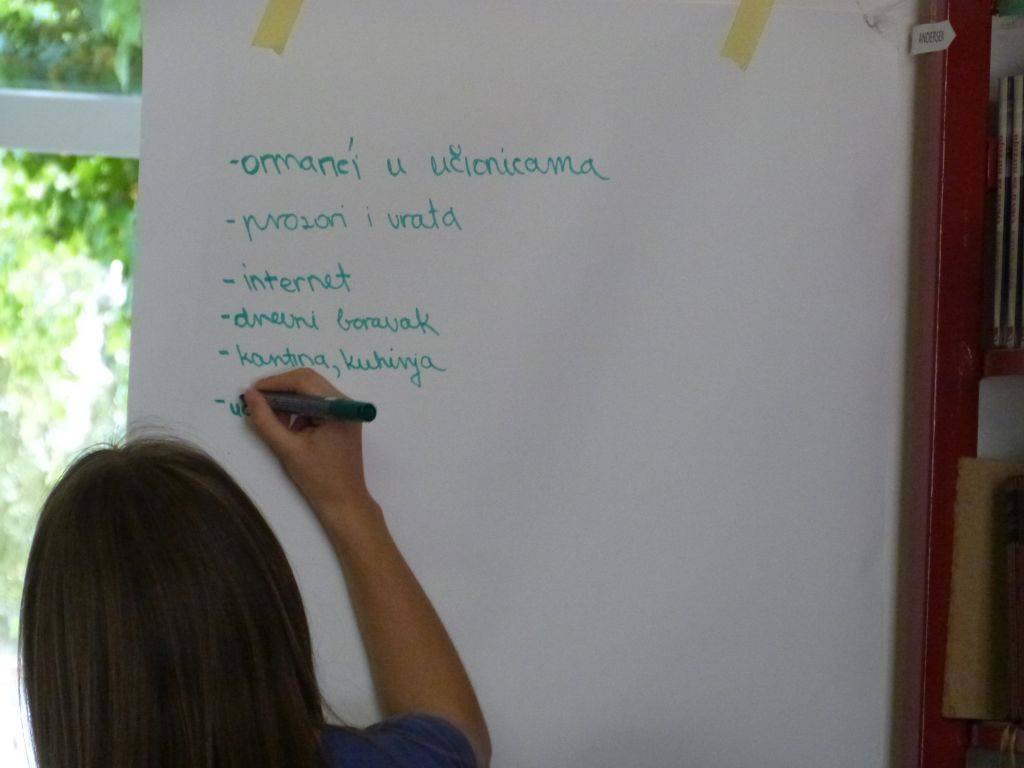 -ormarići u učionicama
-prozori i vrata
-internet
-dnevni boravak
-kantina, kuhinja
-uč
ANDERSEN